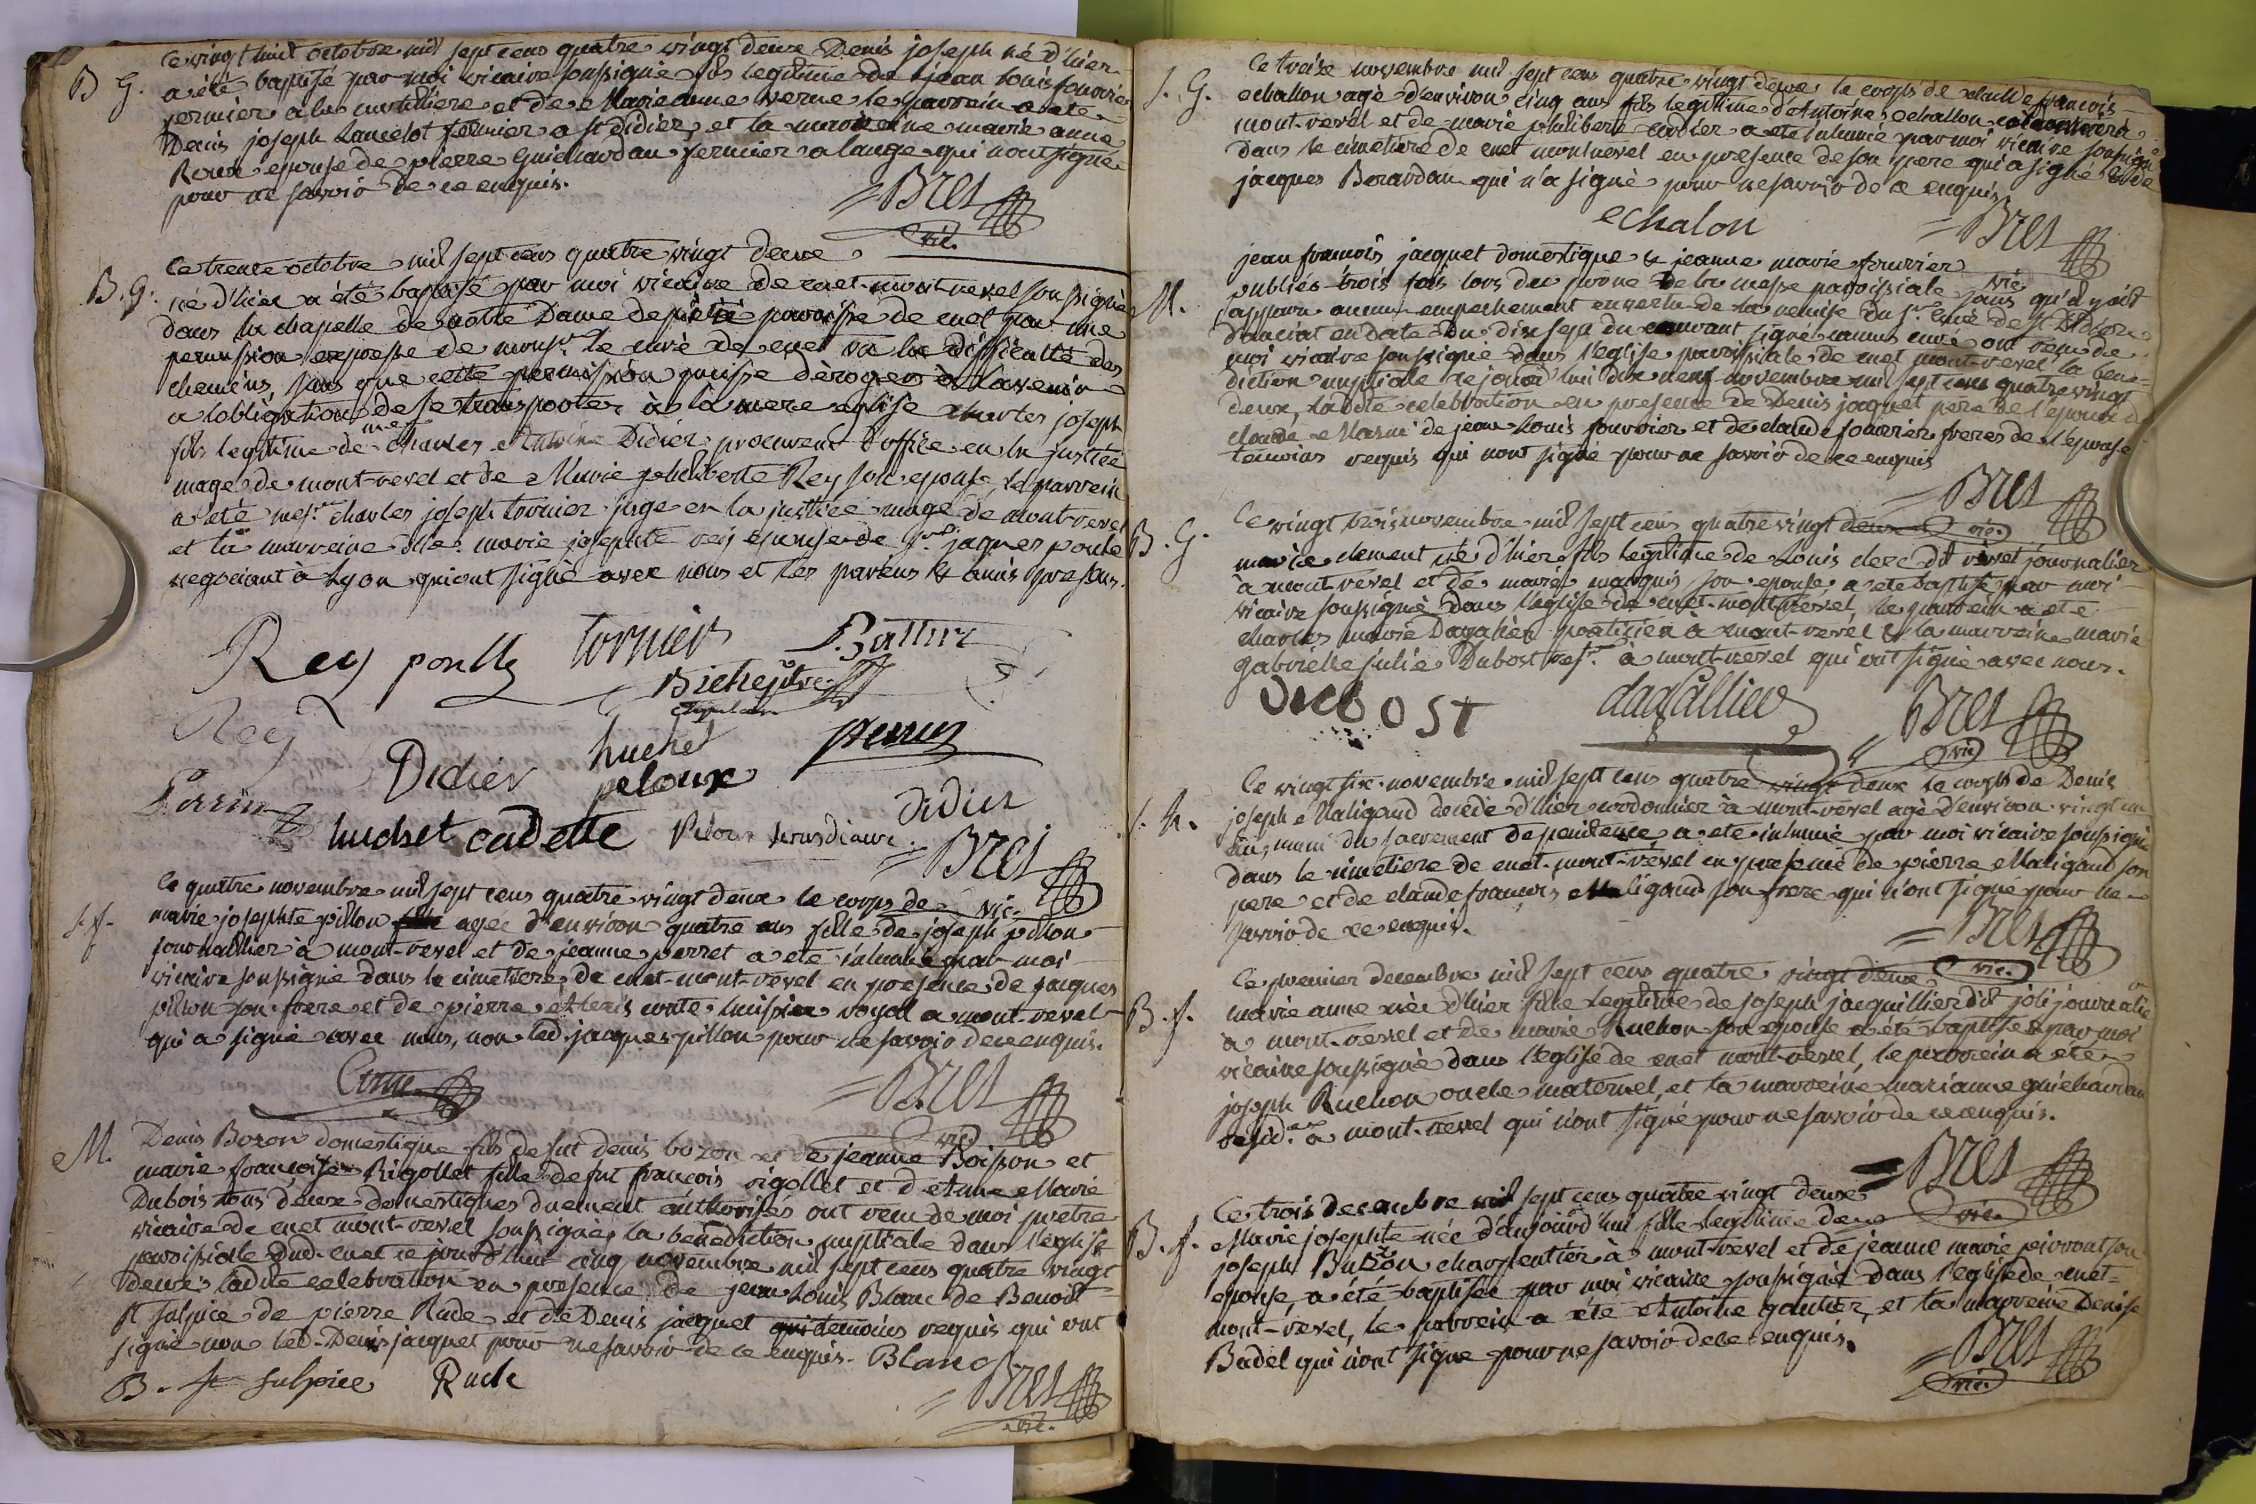 B G.
Ce vingt huit octobre mil sept cens quatre vingt deux Denis joseph né d'hier
a été baptisé par moi vicaire soussigné fils legitime de jean Louis fouvrier
fermier a la et de Marie anne verne le parrein a été
Denis joseph Lancelot fermier a St didier, et la marreine marie anne
epouse de pierre Guichardan fermier a lange qui n'ont signé
pour ne savoir de ce enquis.
= Bret
vic.
B. G.
Ce trente octobre mil sept cens quatre vingt deux
né d'hier a été baptisé par moi vicaire de cuet-mont-revel soussigné
dans la chapelle de notre Dame de pitié paroisse de cuet par une
permission expresse de monsr. le curé de cuet vu la difficulté des
chemins, sans que cette permission puisse déroger à l'avenir
a l'obligation de se transporter à la mere eglise charles joseph
fils legitime de mes. charles Antoine Didier procureur d'office en la justice
mage de mont-revel et de Marie philiberte Rey son epouse, le parrein
a été mesr. charles joseph tornier juge en la justice mage de mont-revel
et la marreine dlle. marie josephte rey epouse de sr. jaques ponlle
negociant à Lyon qui ont signé avec nous et les parens & amis presens.
Rey ponlle tornier
Bichepitre
Rey
Didier huchet perrin
peloux
Perrin
huchet cadette didier
= Bret
vic.
S. f.
Ce quatre novembre mil sept cens quatre vingt deux le corps de
marie josephte pillon agée d'environ quatre ans fille de joseph pillon
journaillier à mont-revel et de jeanne perret a été inhumé par moi
vicaire soussigné dans le cimetiere de cuet-mont-revel en presence de jacques
pillon son frere et de pierre Alexis conte huissier royal a mont-revel
qui a signé avec nous, non led. jacques pillon pour ne savoir de ce enquis.
Conte
= Bret
vic.
M.
Denis Bozon domestique fils de fut denis bozon et de jeanne Boisson et
marie françoise Rigollet fille de fut françois rigollet et d'Anne Marie
Dubois tous deux domestiques duement authorisés ont recu de moi pretre
vicaire de cuet mont-revel soussigné, la benediction nuptiale dans l'eglise
paroissiale dud. cuet ce jourd'hui cinq novembre mil sept cens quatre vingt
deux, ladite celebration en presence de jean Louis Blanc de Benoit
St sulpice de pierre Rude, et de Denis jacquet temoins requis qui ont
signé non led. Denis jacquet pour ne savoir de ce enquis. Blanc
B. St sulpice Rude
= Bret
vic.
S. G.
Ce treize novembre mil sept cens quatre vingt deux le corps de claude françois
echallon agé d'environ cinq ans fils legitime d'Antoine echallon
mont-revel et de marie philibert cordier a été inhumé par moi vicaire soussigné
dans le cimetiere de cuet montrevel en presence de son pere qui a signé & de
jacques Berardan qui n'a signé pour ne savoir de ce enquis
echalon
= Bret
vic
M.
jean françois jacquet domestique & jeanne marie fouvrier
publiés trois fois lors du prone de la messe paroissiale sans qu'il y ait
apparu aucun empechement en vertu de la remise du sr. curé de St Didier
daussiat en date du dix sept du courant signé camus curé ont recu de
moi vicaire soussigné dans l'eglise paroissiale de cuet mont-revel la bene=
diction nuptiale cejourd'hui dix neuf novembre mil sept cens quatre vingt
deux, ladite celebration en presence de Denis jacquet pere de l'epoux de
claude de jean Louis fouvrier et de claude fouvrier freres de l'epouse
temoins requis qui n'ont signé pour ne savoir de ce enquis
= Bret
vic.
B. G.
Ce vingt trois novembre mil sept cens quatre vingt deux
marie clement né d'hier fils legitime de Louis clerc dit rivet journalier
à mont-revel et de marie marquis son epouse, a été baptisé par moi
vicaire soussigné dans l'eglise de cuet-mont-revel, le parrein a été
charles marie Dagallier praticien à mont-revel & la marreine marie
gabrielle julie Dubost à mont-revel qui ont signé avec nous.
DUBOST dagallier = Bret
vic
S. h.
Ce vingt six novembre mil sept cens quatre vingt deux le corps de Denis
joseph Maligand decedé d'hier cordonnier à mont-revel agé d'environ vingt un
an, muni du sacrement de penitence, a été inhumé par moi vicaire soussigné
dans le cimetiere de cuet-mont-revel en presence de pierre Maligand son
pere et de claude françois Maligand son frere qui n'ont signé pour ne
savoir de ce enquis.
= Bret
vic.
B. f.
Ce premier decembre mil sept cens quatre vingt deux
marie anne née d'hier fille legitime de joseph jacquillier dit joli journalier
à mont-revel et de marie Ruchon son epouse a été baptisé par moi
vicaire soussigné dans l'eglise de cuet mont-revel, le parrein a été
joseph Ruchon oncle maternel, et la marreine marianne guichardan
resid.ans à mont-revel qui n'ont signé pour ne savoir de ce enquis.
= Bret
vic.
B. f.
Ce trois decembre mil sept cens quatre vingt deux
Marie josephte née d'aujourd'hui fille legitime de
joseph Buizon charpentier à mont-revel et de jeanne marie son
epouse, a été baptisée par moi vicaire soussigné dans l'eglise de cuet=
mont-revel, le parrein a été Antoine gautier, et la marreine Denise
Badel qui n'ont signé pour ne savoir de ce enquis.
= Bret
vic.